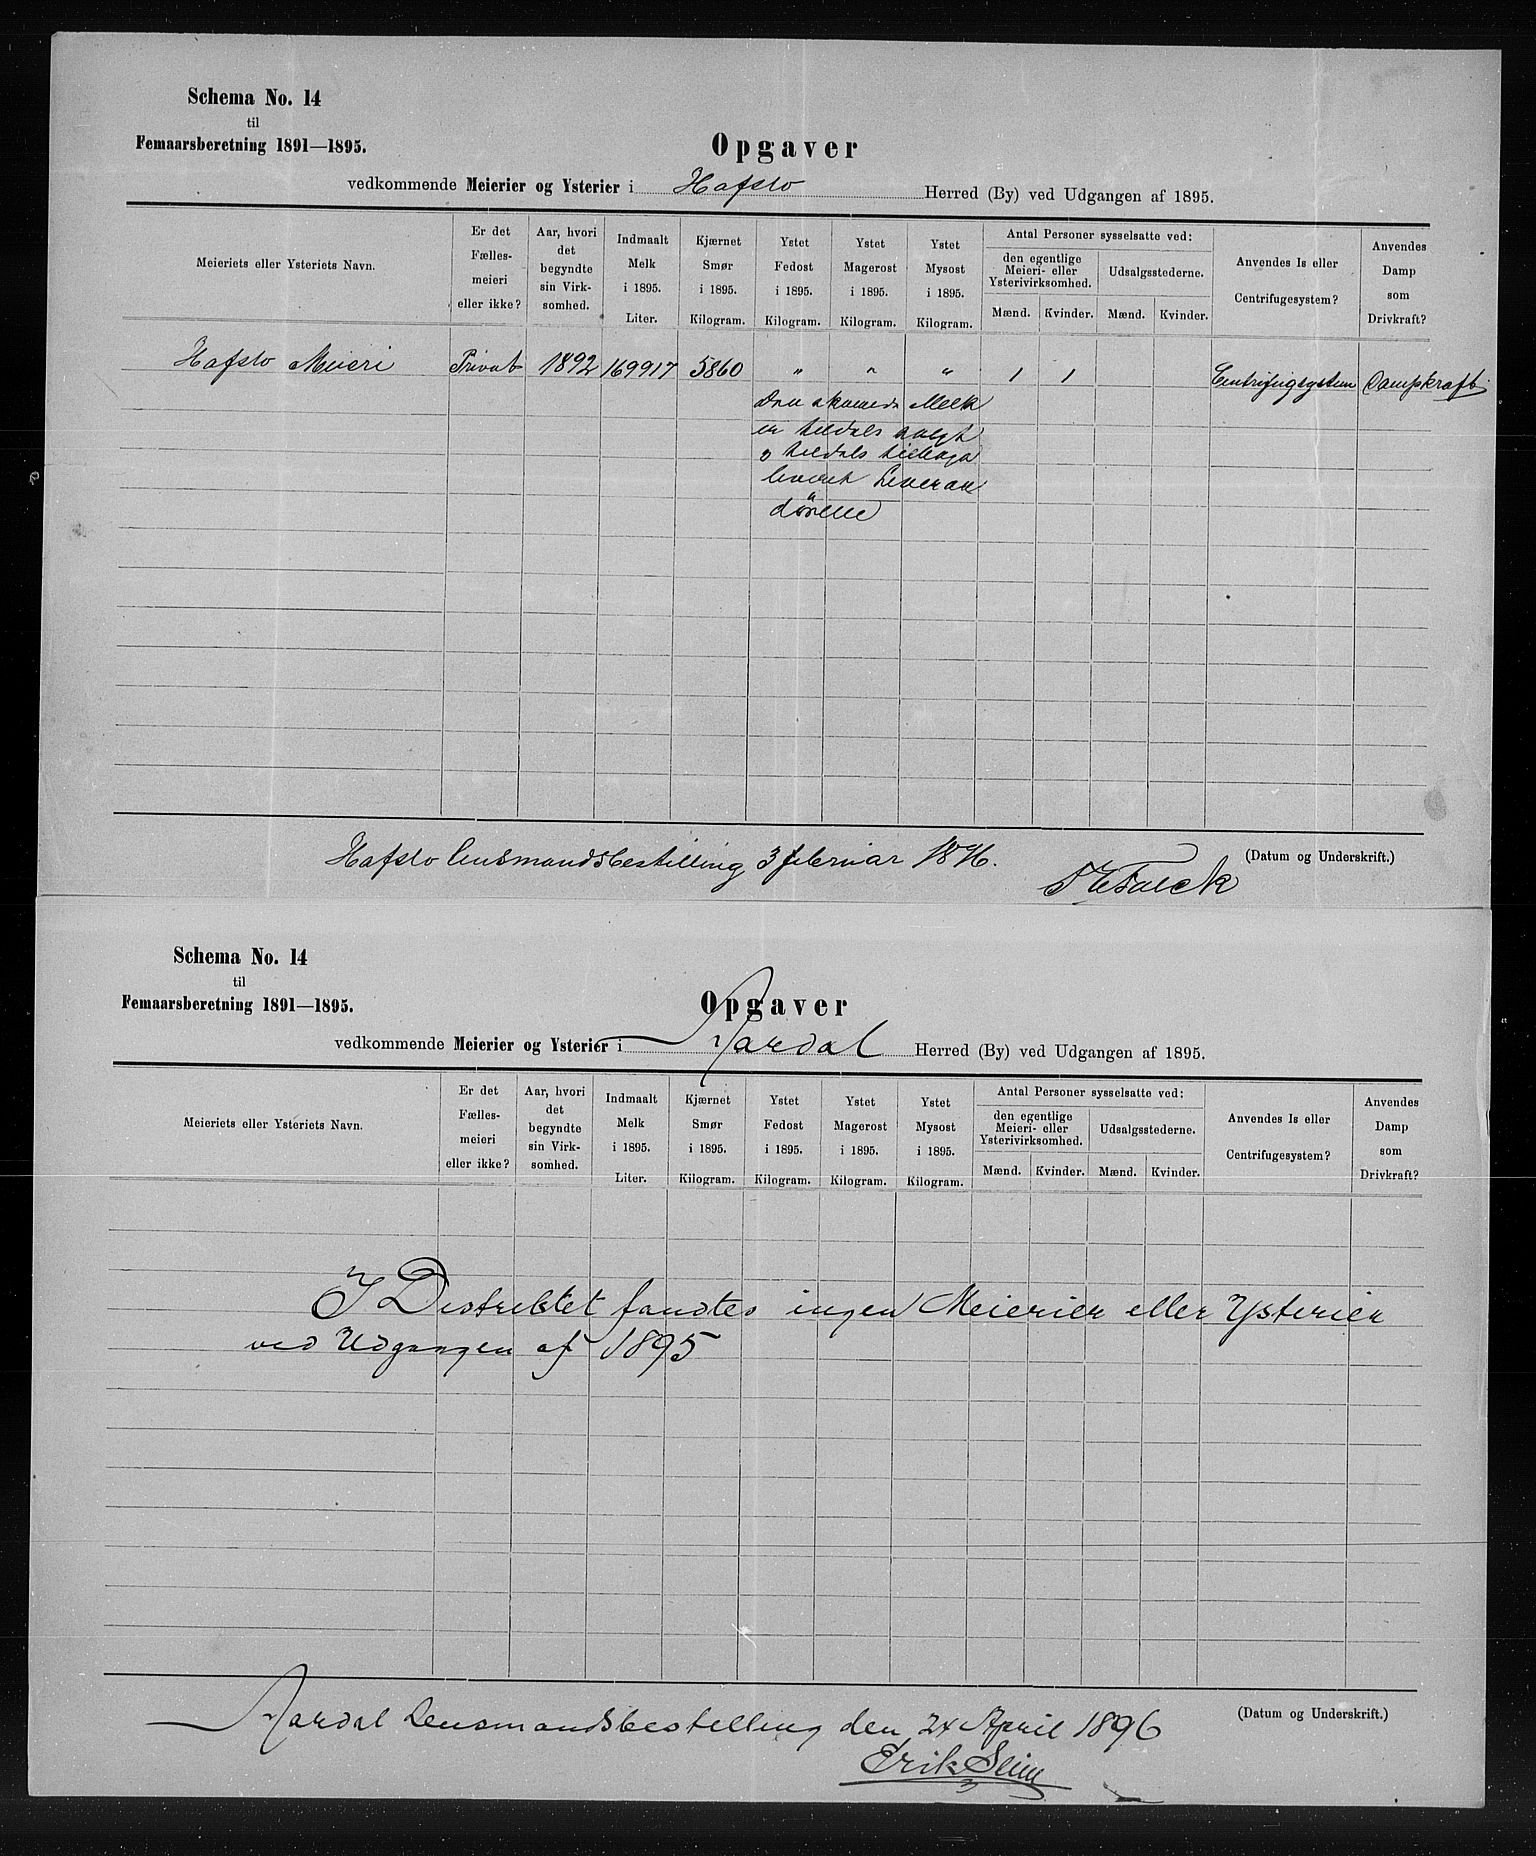 Schema No. 14
til
Femaarsberetning 1891—1895.
Opgaver
vedkommende Meierier og Ysterier i Hafslo Herred (By) ved Udgangen af 1895.
Meieriets eller Ysteriets Navn.
Er det Fælles-meieri eller ikke?
Aar, hvori det begyndte sin Virk-somhed.
Indmaalt Melk i 1895. Liter.
Kjærnet Smør i 1895. Kilogram.
Ystet Fedost i 1895. Kilogram.
Ystet Magerost i 1895. Kilogram.
Ystet Mysost i 1895. Kilogram.
Antal Personer sysselsatte ved:
den egentlige Meieri- eller Ysterivirksomhed.
Udsalgsstederne.
Mænd. Kvinder. Mænd. Kvinder.
Anvendes Is eller Centrifugesystem?
Anvendes Damp som Drivkraft?
Hafslo Meieri Privat 1892 169917 5860 " " " 1 1 Centrifugsystem Dampkraft
Den skumede Melk
er tildels solgt
o tildels tilbage
leveret Leveran
dörene
Hafslo lensmandsbestilling 3 februar 1896.
(Datum og Underskrift.)
Falck
Schema No. 14
til
Femaarsberetning 1891—1895.
Opgaver
vedkommende Meierier og Ysterier i Aardal Herred (By) ved Udgangen af 1895.
Meieriets eller Ysteriets Navn.
Er det Fælles-meieri eller ikke?
Aar, hvori det begyndte sin Virk-somhed.
Indmaalt Melk i 1895. Liter.
Kjærnet Smør i 1895. Kilogram.
Ystet Fedost i 1895. Kilogram.
Ystet Magerost i 1895. Kilogram.
Ystet Mysost i 1895. Kilogram.
Antal Personer sysselsatte ved:
den egentlige Meieri- eller Ysterivirksomhed.
Udsalgsstederne.
Mænd. Kvinder. Mænd. Kvinder.
Anvendes Is eller Centrifugesystem?
Anvendes Damp som Drivkraft?
I Distriktet fandtes ingen Meierier eller Ysterier
ved Udgangen af 1895
Aardal Lensmandsbestilling den 24 April 1896
(Datum og Underskrift.)
Erik Slim